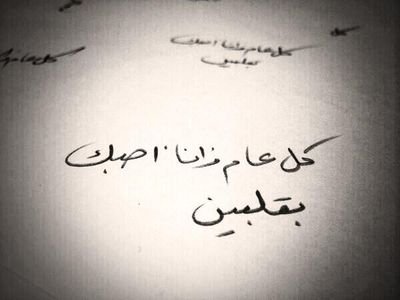 كل
كل عام وانا احبك
بقلبين
كل عام
كل عام وانا احبك
بقلبين